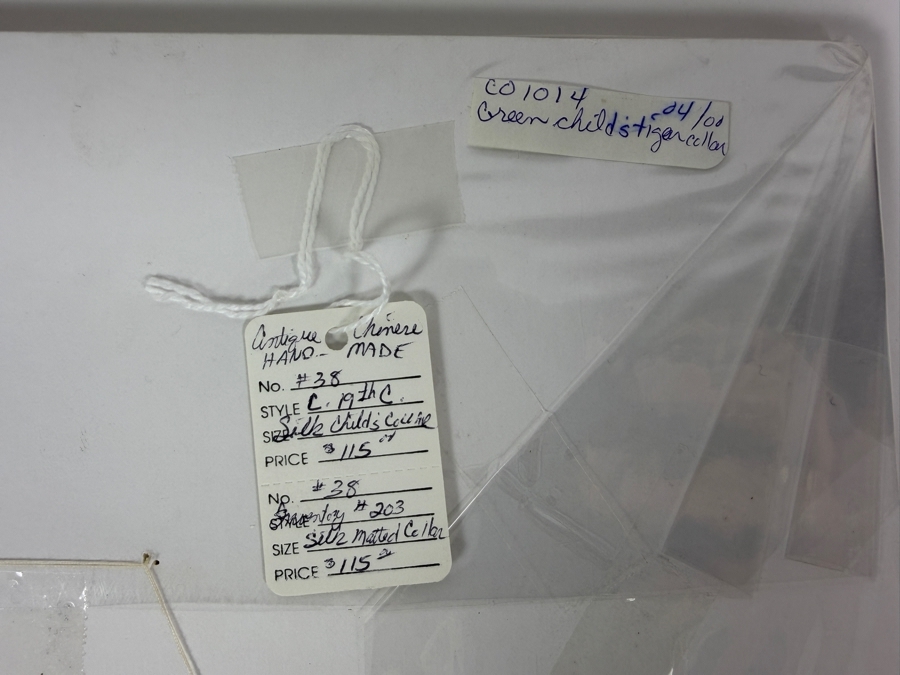 CO1014
04/00
Green child's tiger collar
Antique Chinese
HAND- MADE
No. #38
STYLE C. 19th C.
SIZE Silk Child's Collar
PRICE $115 00
No. #38
STYLE Inventory #203
SIZE Silk Matted Collar
PRICE $115 00